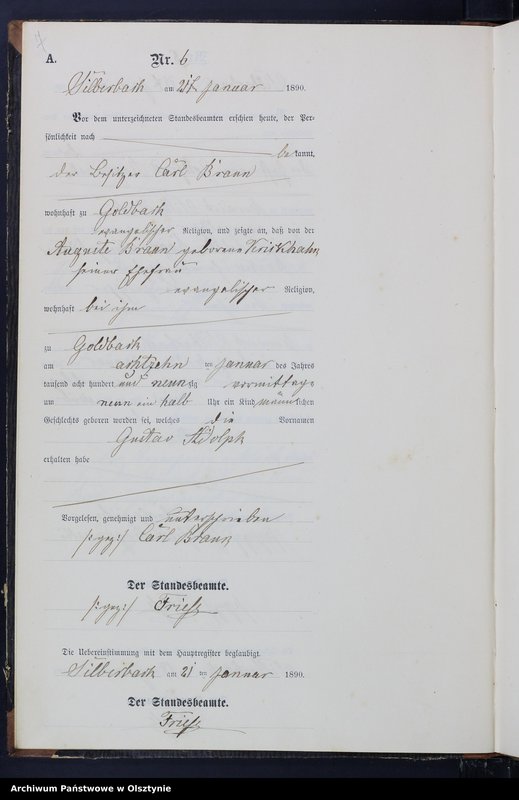 A.
Nr. 6
Silberbach am 21ten Januar 1890.
Vor dem unterzeichneten Standesbeamten erschien heute, der Per-
sönlichkeit nach
bekannt,
der Besitzer Carl Braun
wohnhaft zu Goldbach
evangelischer Religion, und zeigte an, daß von der
Auguste Braun geborene Kriskhahn
seiner Ehefrau
evangelischer Religion,
wohnhaft bei ihm
zu Goldbach
am achtzehn ten Januar des Jahres
tausend acht hundert und neunzig vormittags
um neun ein halb Uhr ein Kind männlichen
Geschlechts geboren worden sei, welches die Vornamen
Gustav Adolph
erhalten habe
Vorgelesen, genehmigt und unterschrieben
/:gez:/ Carl Braun
Der Standesbeamte.
/:gez:/ Friese
Die Uebereinstimmung mit dem Hauptregister beglaubigt.
Silberbach am 21 ten Januar 1890.
Der Standesbeamte.
Friese
Archiwum Państwowe w Olsztynie